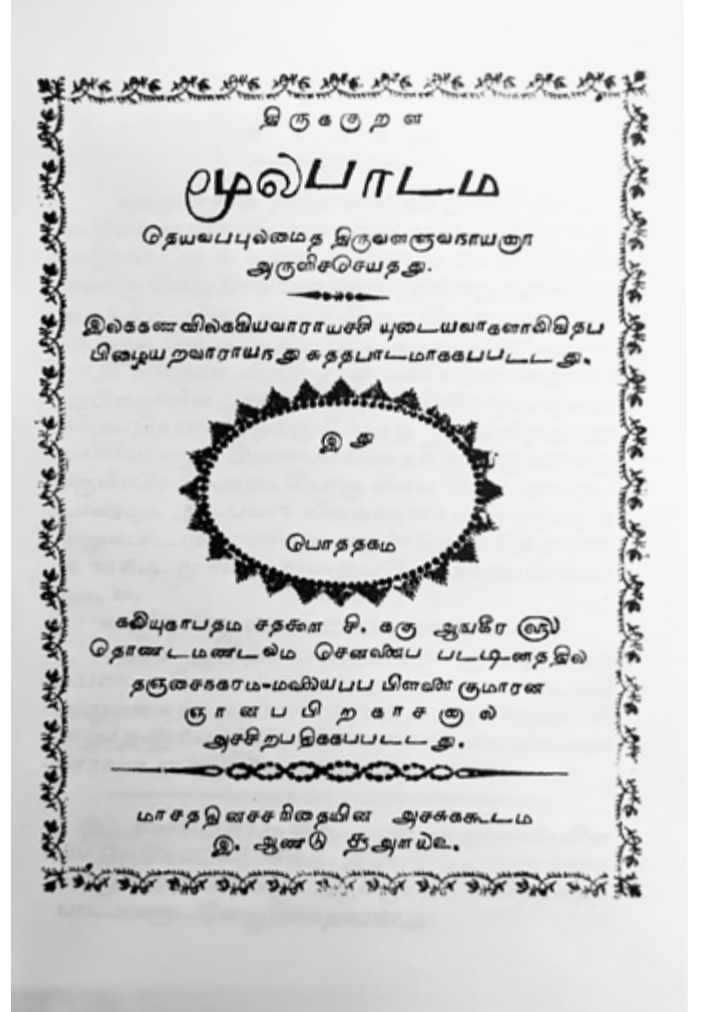 திருககுறள
மூலபாடம
தெயவபபுலமைத திருவளளுவநாயனார
அருளிசசெயதது.
இலககணவிலககியவாராயசசி யுடையவரகளாலிகிதப
பிழையறவாராயநது சுததபாடமாககபபடடது.
இஃது
பொததகம
கலியுகாபதம சதகூள சி. ககு ஆஙகீர ௵
தொணடமணடலம செனனப படடினததில
தஞசைநகரம-மலையபப பிளளை குமாரன
ஞானபபிறகாசனால
அசசிறபதிககபபடடது.
மாசததினசசரிதையின அசசுககூடம
இ. ஆணடு ௲அாயஉ.